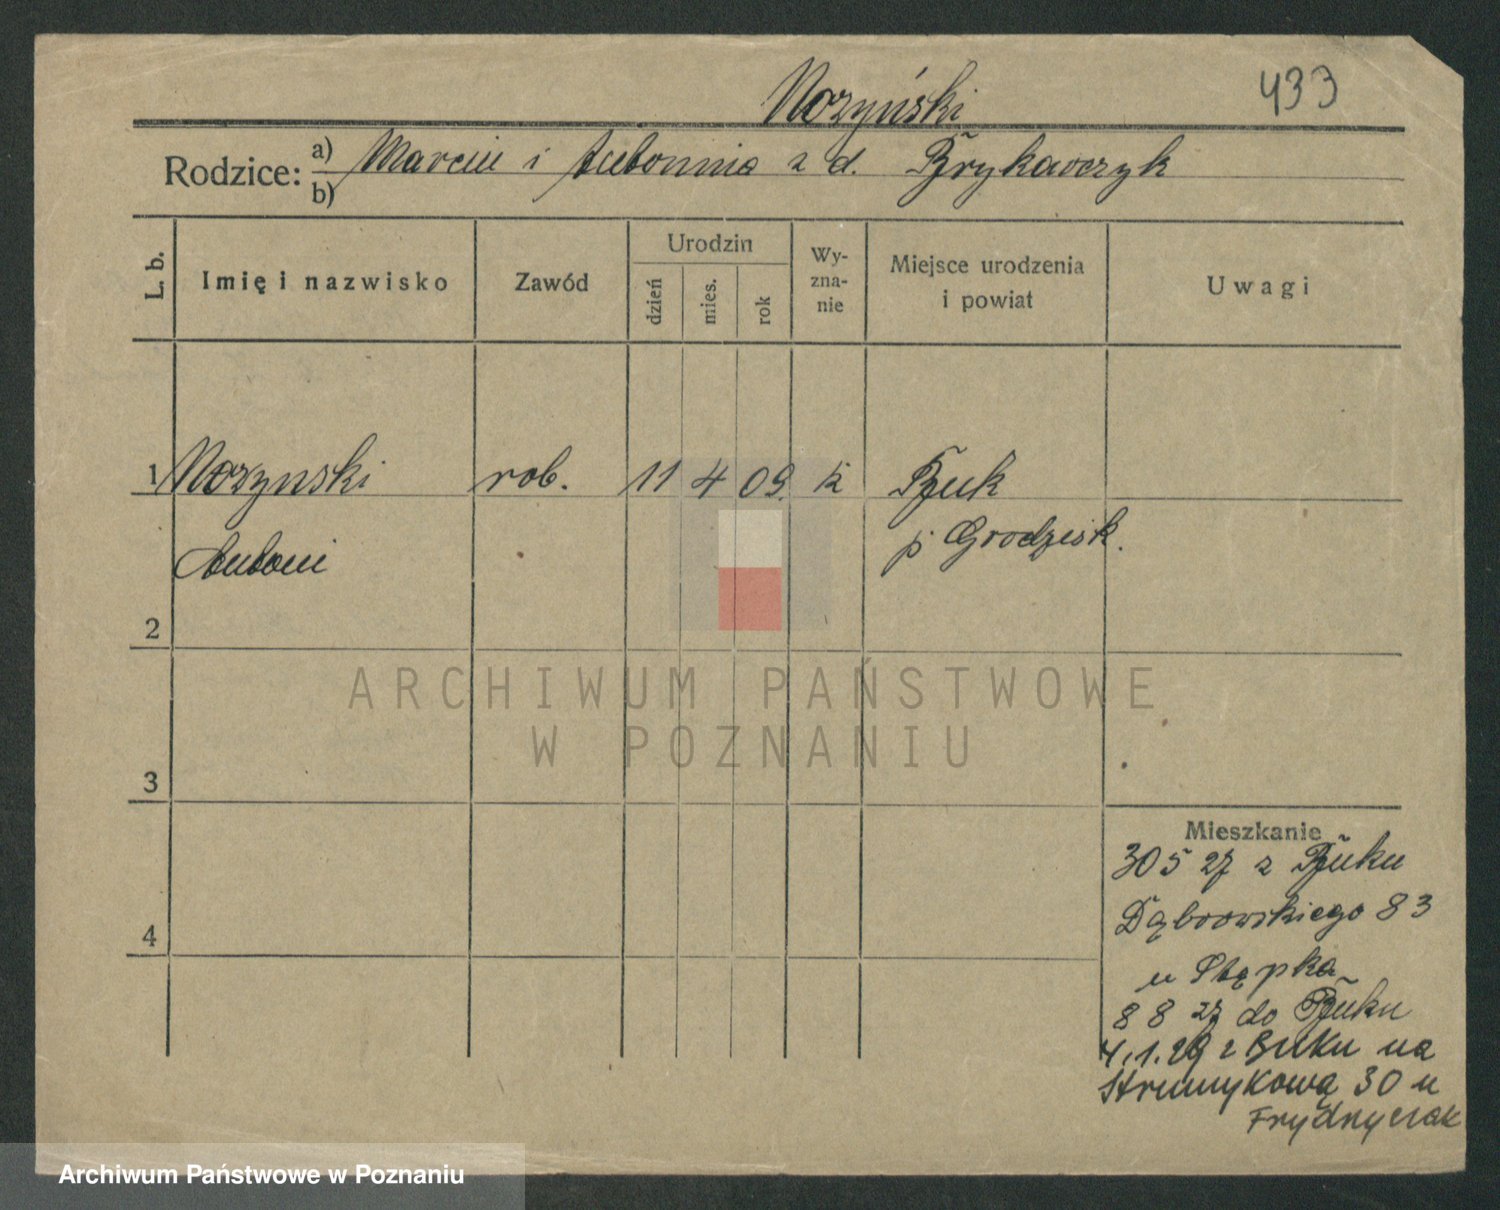 Nozyński 433
Rodzice: a) Marcin i Antonina z d. Brykawczyk
b)
L. b. Imię i nazwisko Zawód Urodzin dzień mies. rok Wy-zna-nie Miejsce urodzenia i powiat Uwagi
1 Nozynski rob. 11 4 09. k Buk
Antoni p Grodzisk.
2
3
4
Mieszkanie
30 5 27 z Buku
Dąbrowskiego 83
u Stępka
8 8 27 do Buku
4.1.29 z Buku na
Strumykową 30 u
Frydryczak
ARCHIWUM PAŃSTWOWE
W POZNANIU
Archiwum Państwowe w Poznaniu